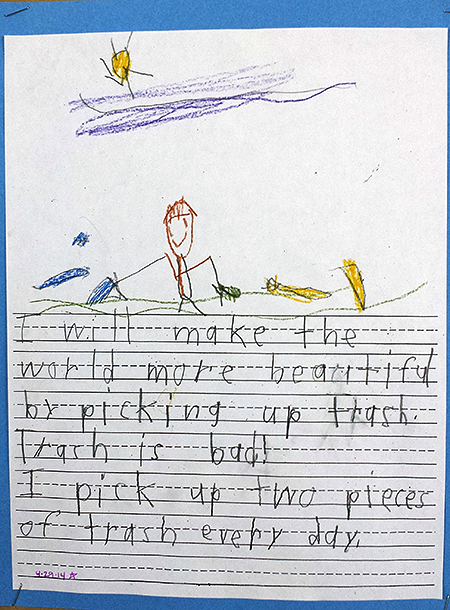 I will make the
world more beautiful
by picking up trash.
Trash is bad!
I pick up two pieces
of trash every day.
4-29-14 A